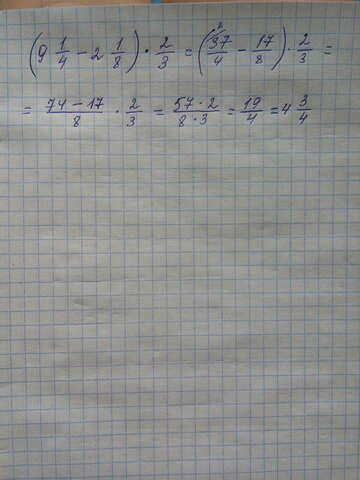 (9 1/4 − 2 1/8) · 2/3 = (37/4 − 17/8) · 2/3 =
= (74 − 17)/8 · 2/3 = (57 · 2)/(8 · 3) = 19/4 = 4 3/4